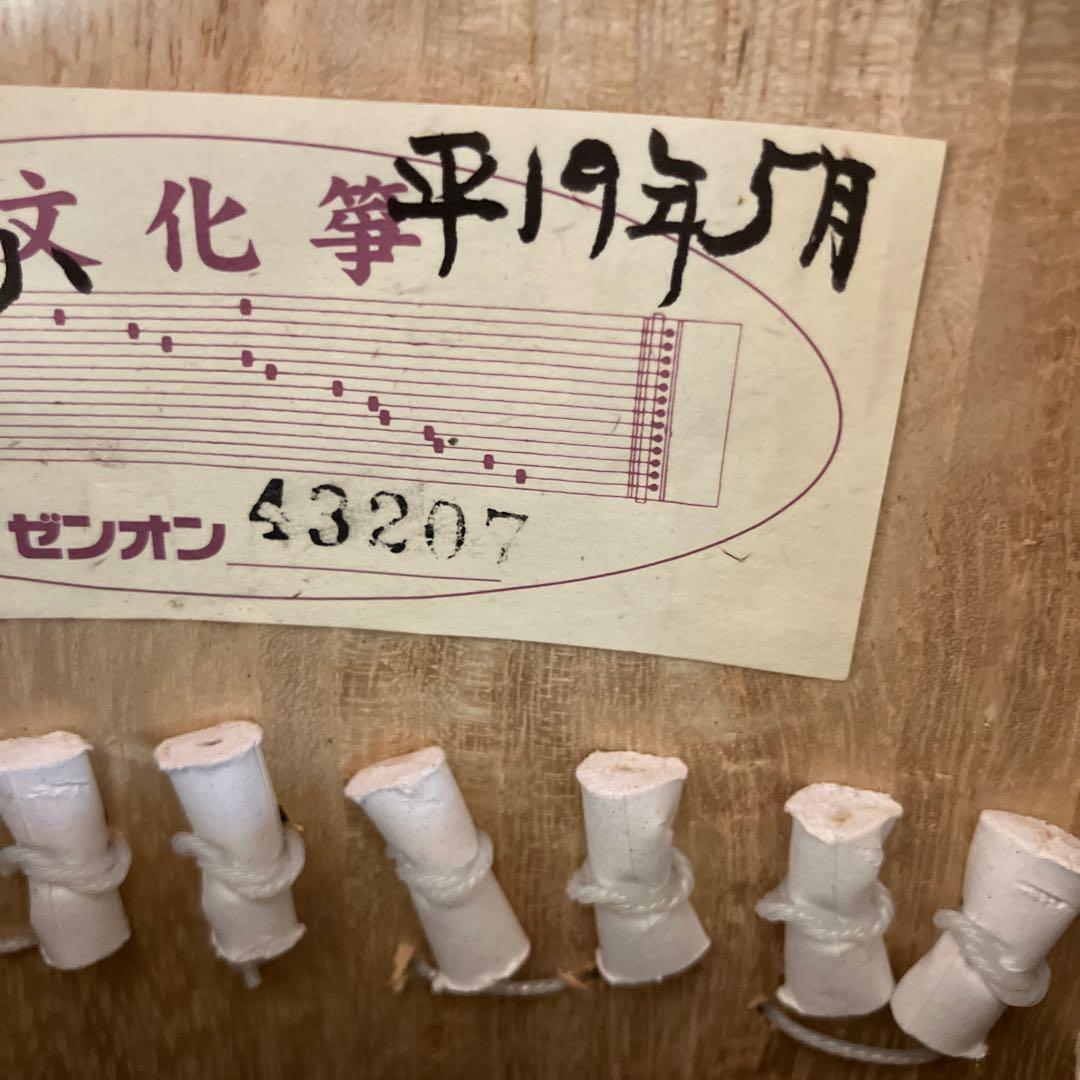 文化箏
平19年5月
ゼンオン 43207